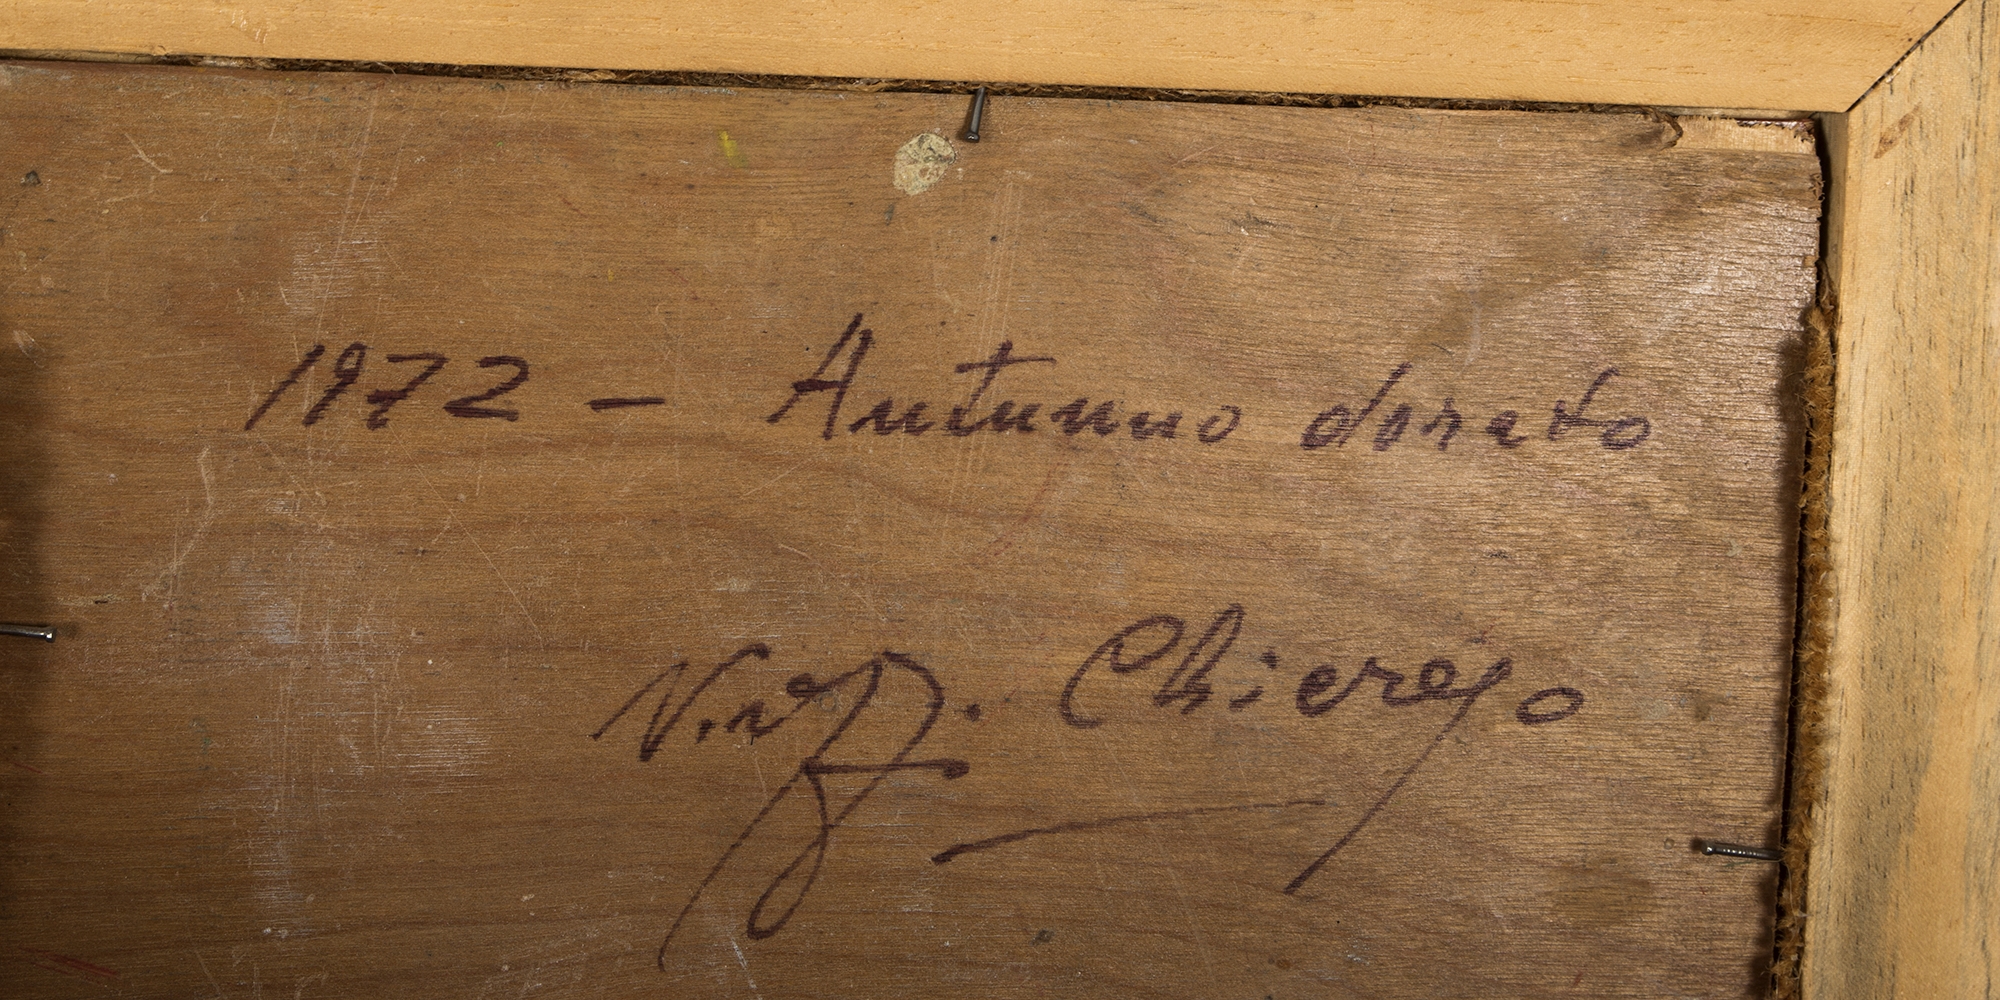 1972 – Autunno dorato
Chierego